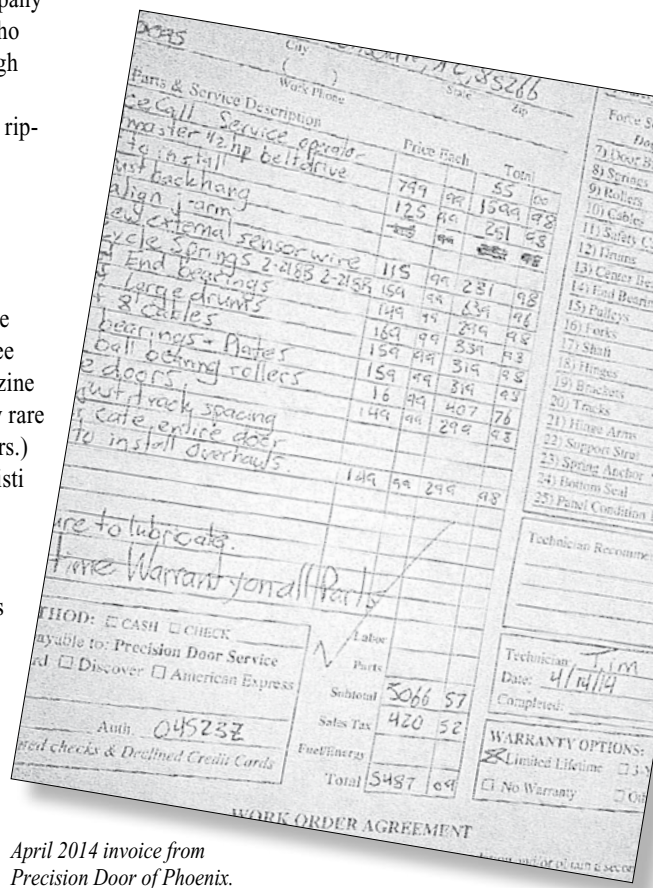 pany
ho
gh
rip-
e
ee
zine
y rare
rs.)
isti
s
85266
City State Zip
( )
Work Phone
Parts & Service Description Price Each Total
ce Call Service operator 55 00
master 1/2 hp beltdrive 799 99 1599 98
to install 125 99 251 98
ust backhang
align y-arm
external sensor wire 115 99 231 98
cycle Springs 2-218B 2-218B 159 99 639 96
End bearings 149 99 299 98
large drums 169 99 339 98
8 Cables 159 99 319 98
bearings + Plates 159 99 319 98
ball bearing rollers 16 99 407 76
e doors 149 99 299 98
just track spacing
cate entire door
to install overhauls. 149 99 299 98
ure to lubricate.
time Warranty on all Parts
THOD: CASH CHECK
ayable to: Precision Door Service
rd Discover American Express
Auth. 045237
ned checks & Declined Credit Cards
Labor
Parts
Subtotal 5066 57
Sales Tax 420 52
Fuel/Energy
Total 5487 09
Force S
Do
7) Door B
8) Springs
9) Rollers
10) Cables
11) Safety C
12) Drums
13) Center Be
14) End Bearin
15) Pulleys
16) Forks
17) Shaft
18) Hinges
19) Brackets
20) Tracks
21) Hinge Arms
22) Support Strut
23) Spring Anchor
24) Bottom Seal
25) Panel Condition
Technician Recomme
Technician: Tim
Date: 4/14/14
Completed:
WARRANTY OPTIONS:
Limited Lifetime 3-Y
No Warranty
WORK ORDER AGREEMENT
April 2014 invoice from
Precision Door of Phoenix.